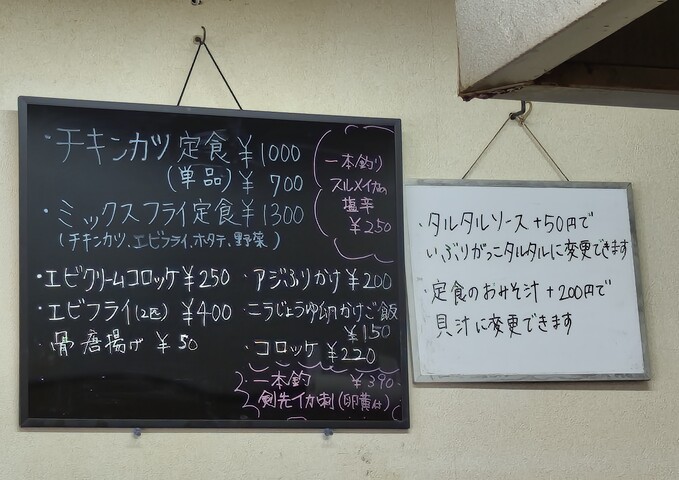 ・チキンカツ定食 ¥1000
(単品) ¥700
・ミックスフライ定食 ¥1300
(チキンカツ、エビフライ、ホタテ、野菜)
一本釣り
スルメイカの
塩辛
¥250
・エビクリームコロッケ ¥250
・エビフライ(2匹) ¥400
・骨唐揚げ ¥50
・アジふりかけ ¥200
・ニラじょうゆ卵かけご飯
¥150
・コロッケ ¥220
一本釣 ¥390
剣先イカ刺(卵黄付)
・タルタルソース+50円で
いぶりがっこタルタルに変更できます
・定食のおみそ汁+200円で
貝汁に変更できます